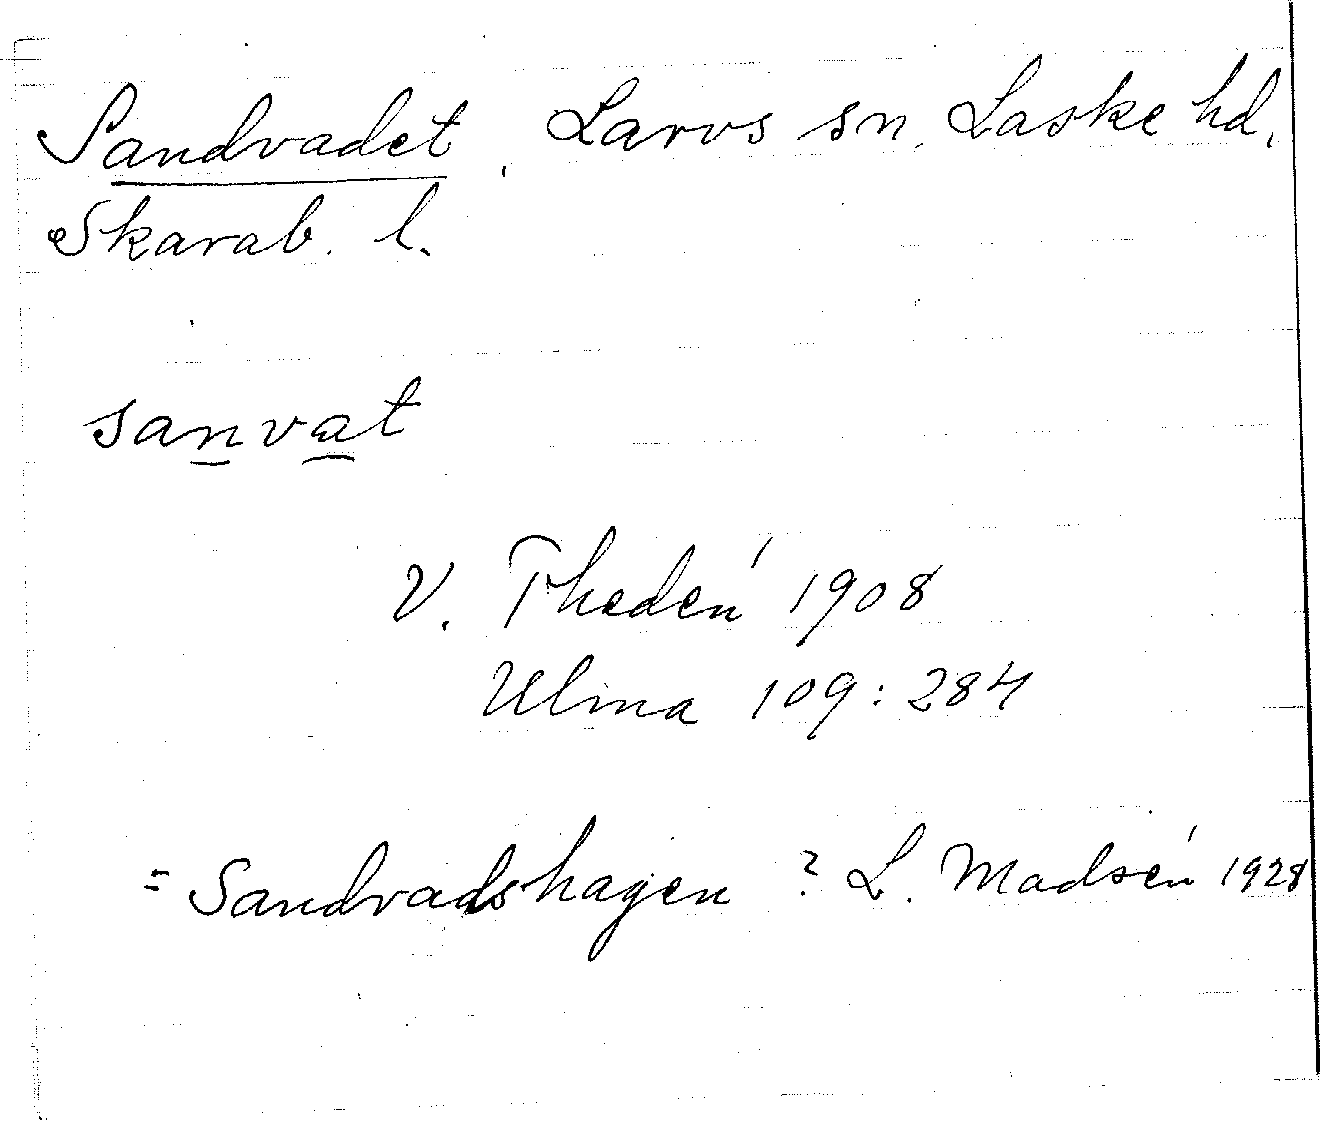 Sandvadet, Larvs sn, Laske hd,
Skarab. l.
sanvat
V. Thedén 1908
Ulma 109:284
= Sandvadshagen ? L. Madsén 1928